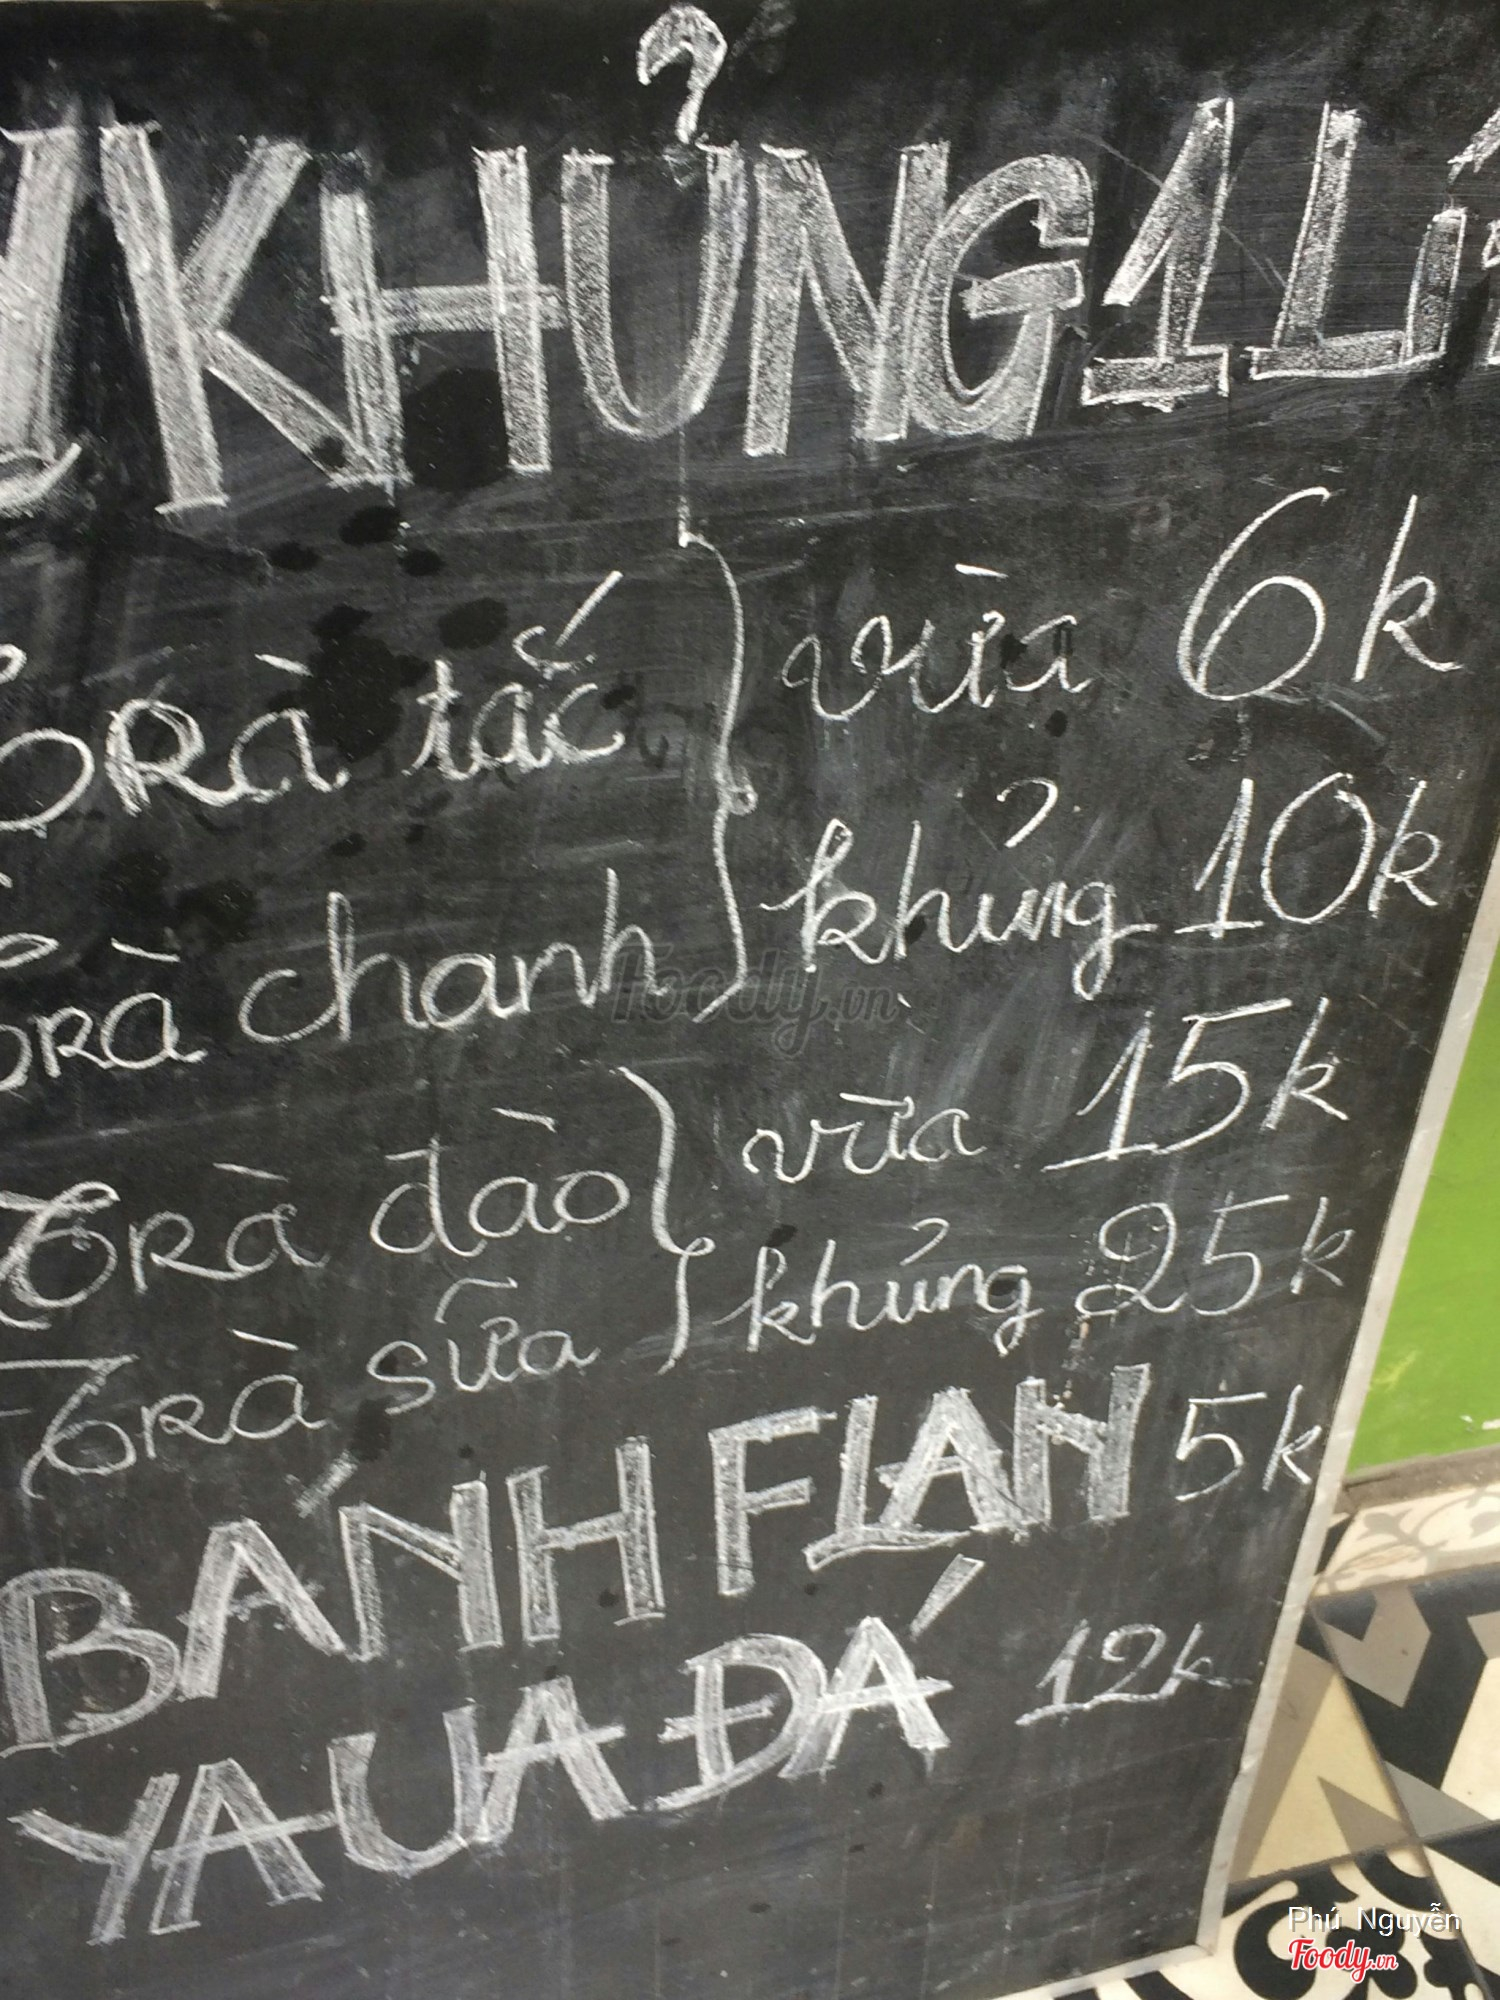 KHỦNG 1 Lí
Trà tắc
vừa 6k
khủng 10k
Trà chanh
Trà đào
vừa 15k
khủng 25k
Trà sữa
BÁNH FLAN 5k
YAUA ĐÁ 12k
Foody.vn
Phú Nguyễn
Foody.vn